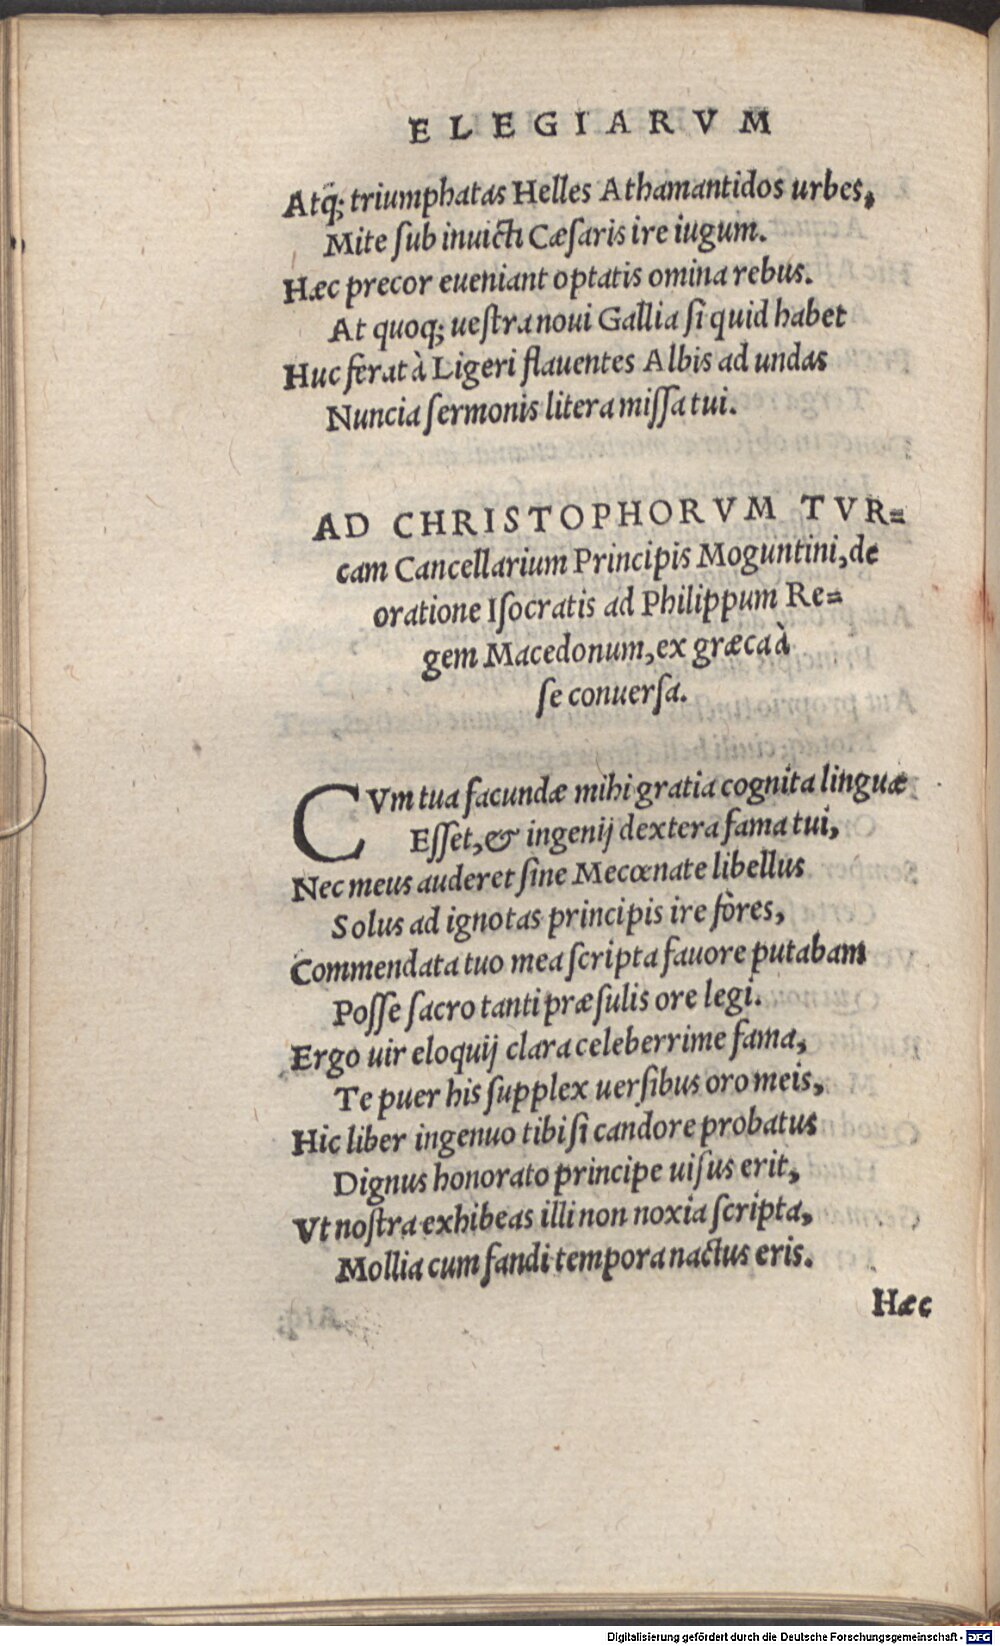 ELEGIARVM
Atq́; triumphatas Helles Athamantidos urbes,
Mite ſub inuicti Cæſaris ire iugum.
Hæc precor eueniant optatis omina rebus.
At quoq; ueſtra noui Gallia ſi quid habet
Huc ferat à Ligeri flauentes Albis ad undas
Nuncia ſermonis litera miſſa tui.
AD CHRISTOPHORVM TVR=
cam Cancellarium Principis Moguntini, de
oratione Iſocratis ad Philippum Re=
gem Macedonum, ex græca à
ſe conuerſa.
CVm tua facundæ mihi gratia cognita linguæ
Eſſet, & ingenij dextera fama tui,
Nec meus auderet ſine Mecœnate libellus
Solus ad ignotas principis ire fòres,
Commendata tuo mea ſcripta fauore putabam
Poſſe ſacro tanti præſulis ore legi.
Ergo uir eloquij clara celeberrime fama,
Te puer his ſupplex uerſibus oro meis,
Hic liber ingenuo tibi ſi candore probatus
Dignus honorato principe uiſus erit,
Vt noſtra exhibeas illi non noxia ſcripta,
Mollia cum fandi tempora nactus eris.
Hæc
Digitalisierung gefördert durch die Deutsche Forschungsgemeinschaft - DFG